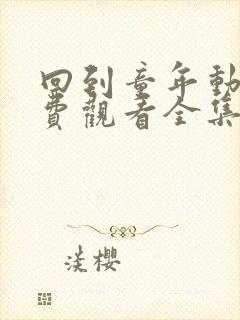 回到童年動
費觀看全集
淡櫻